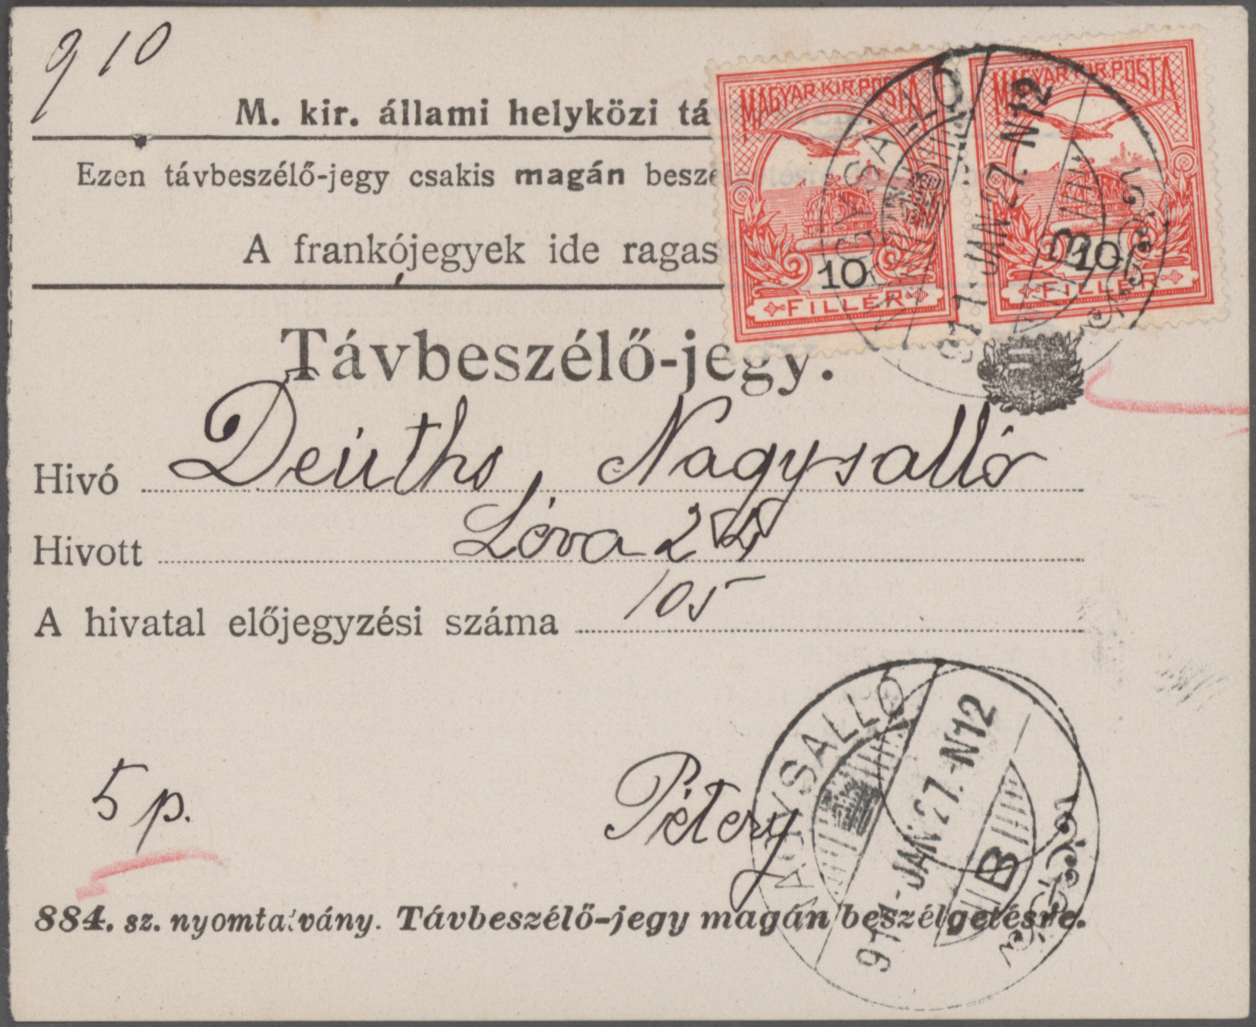 910
M. kir. állami helyközi tá
Ezen távbeszélő-jegy csakis magán besz
A frankójegyek ide ragas
MAGYAR·KIR·POSTA
10
FILLÉR
MAGYAR·KIR·POSTA
10
FILLÉR
911-JAN 27.-N12
B
Távbeszélő-jegy.
Hivó Deúths, Nagysalló
Hivott Léva 24
A hivatal előjegyzési száma 105
5 p.
Pétery
NAGYSALLÓ
911-JAN 27.-N12
B
884. sz. nyomtatvány. Távbeszélő-jegy magán beszélgetésre.